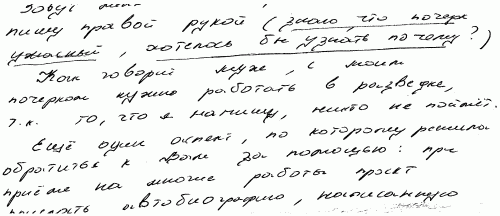 Зовут
пишу правой рукой (знаю, что почерк
ужасный, хотелось бы узнать почему?)
Как говорит муж, с моим
почерком нужно работать в разведке,
т.к. то, что я напишу, никто не поймёт.
Ещё один аспект, по которому решила
обратиться к Вам за помощью: при
приёме на многие работы просят
прислать автобиографию, написанную